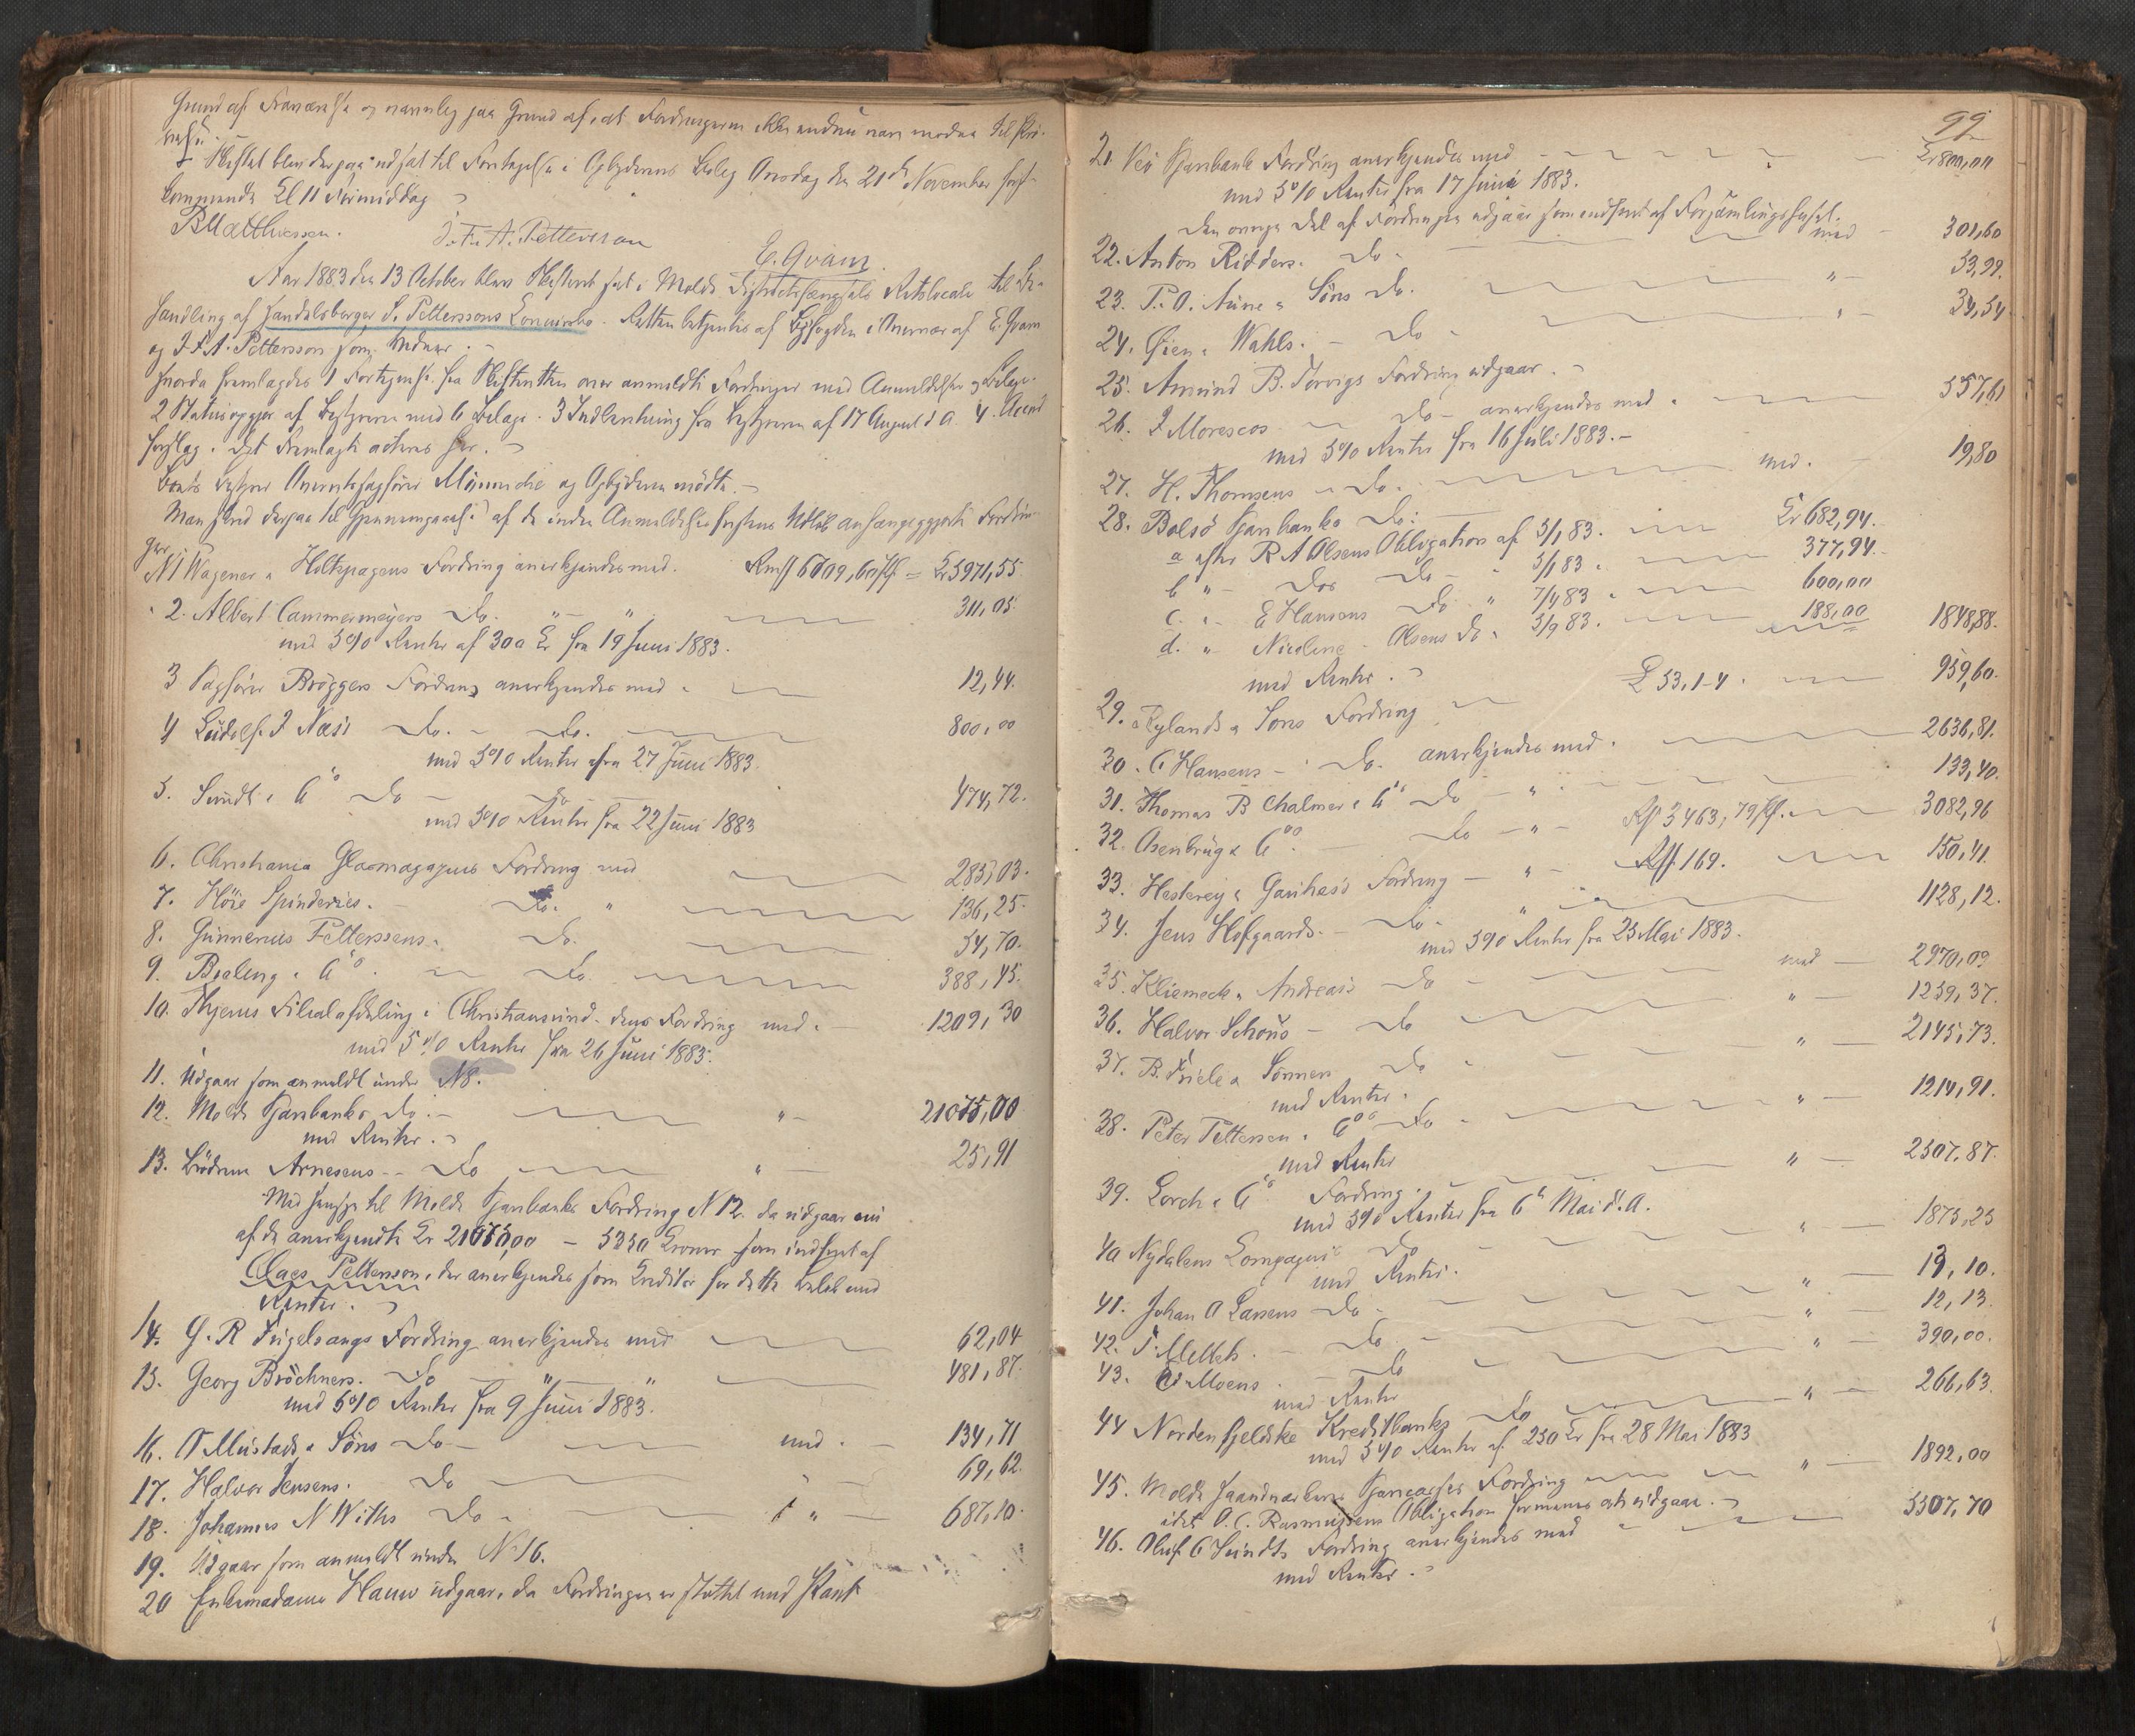 Grund af Fraværelse og navnlig paa Grund af, at Fordringerne ikke endnu vare modne til Prö-
velse.
Skiftet blev derpaa udsat til Foretagelse i Ogbyderens Bolig Onsdag den 21de November först-
kommende Kl 11 Formiddag
BMatthiessen. J. F. A. Pettersson
E. Qvam.
Aar 1883 den 13 October blev Skifteret sat i Molde Distriktsfængsels Retslocale til Be-
handling af Handelsborger S. Petterssons Concursbo. Retten betjentes af Byfogden i Nærvær af E. Qvam
og J. F. A. Pettersson som Vidner.
Fra fremlagdes 1 Fortegnelse fra Skifteretten over anmeldte Fordringer med Anmeldelser og Bilage.
2 Statusopgjör af Bestyreren med 6 Bilage. 3 Indberetning fra Bestyreren af 17 August d. A. 4.
forslag. Det Fremlagte acteres her.
Boets Bestyrer Overretssagförer og mödte.
Man skred derpaa til Prövning af de inden Anmeldelsesfristens Udlöb Fordrin-
ger
N 1 Wagener & Fordring anerkjendes med. Rmk 6709,60 Pf = Kr 5971,55
2. Albert Cammermeyers Do. " " 311,05
med 5% Renter af 300 Kr fra 19 Juni 1883.
3 Sagförer Bröggers Fordring anerkjendes med 12,44.
4 Ludolf. J Næss Do. - Do. 800,00
med 5% Renter fra 27 Juni 1883.
5. Sundt & Co Do - Do 474,72.
med 5% Renter fra 22 Juni 1883
6. Christiania Glasmagazins Fordring med 283,03.
7. Höie Spinderies. Do. " 136,25.
8. Gunnerius Pettersens. Do. 54,70.
9. & Co. Do 388,45.
10. Filialafdeling i Christiansund. dens Fordring med. 1209,30
med 5% Renter fra 26 Juni 1883.
11. Udgaar som anmeldt under N 8.
12. Molde Sparebanks Do. " 21075,00
med Renter.
13. Brödrene Arnesens Do " 25,91
Med Hensyn til Molde Sparebanks Fordring N 12. da udgaar
af de anerkjendte Kr 21075,00 - 5350 Kroner som indfriet af
Claes Pettersson, der anerkjendes som Kreditor for dette Belöb med
Renter.
14. G. R Fuglesangs Fordring anerkjendes med 62,04
15. Georg Bröchners. Do " " 481,87.
med 6% Renter fra 9 Juni 1883.
16. O Mustads & Söns Do med. 134,71
17. Halvor Jensens. Do 69,62.
18. Johannes N Withs Do " 687,10.
19. Udgaar som anmeldt under N 16.
20 Enkemadame Hauw udgaar, da Fordringen er stöttet med Pant
99
21. Veö Sparebanks Fordring anerkjendes med Kr 800,00
med 5% Renter fra 17 Juni 1883.
Den övrige Del af Fordringen udgaar som indfriet af
22. Anton Ridders. Do. med 301,60
23. P. O. Aune & Söns Do. " 53,99.
24. Öien & Wahls. Do " 34,54
25. Amund B. Fordring udgaar.
26. J Morescos Do anerkjendes med 557,61
med 5% Renter fra 16 Juli 1883.
27. H. Thomsens Do. med. 19,80
28. Bolsö Sparebanks Do:
a efter R A Olsens Obligation af 3/1 83. Kr 682,94.
b " Do Do 3/1 83. 377,94.
c. " E Hansens Do " 7/4 83 600,00
d. " Nicoline Olsens Do " 3/9 83. 188,00 1848,88.
med Renter.
29. Rylands & Sons Fordring £ 53,1-4. 959,60.
30. C Hansens Do. anerkjendes med. 2636,81.
31. Thomas B Chalmer & Co Do " 133,40.
32. Osenbrüg & Co. Do " Rf 3463,79 Pf. 3082,96
33. & Fordring " Rf 169. 150,41.
34. Jens Hofgaards. Do. " 1128,12.
med 5% Renter fra 25 Mai 1883.
35. & Andreas Do med 2970,09
36. Halvor Schous Do " 1259,37.
37. B. Friele & Sönners Do " 2145,73.
med Renter.
38. Peter Pettersen & Co Do " 1214,91.
med Renter
39. Lorck & Co Fordring. " 2307,87.
med 5% Renter fra 6te Mai d. A.
40 Nydalens Compagnis Do " 1875,25
med Renter.
41. Johan O Larsens Do. " 13,10.
42. Do " 12,13.
43. Moens. Do " 390,00.
med Renter
44 Nordenfjeldske Kreditbanks Do " 266,63.
med 5% Renter af 250 Kr fra 28 Mai 1883
45. Molde Haandværkeres Sparecasses Fordring " 1892,00
idet O. C. Rasmussens Obligation udgaar.
46. Oluf C Sundts Fordring anerkjendes med 5507,70
med Renter.